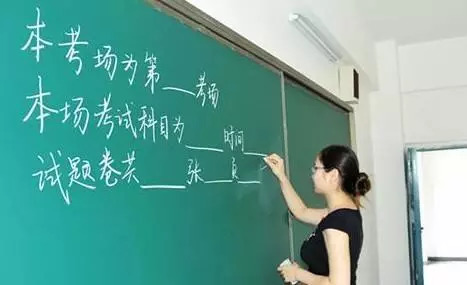 本考场为第___考场
本场考试科目为___时间___
试题卷共___张___页___